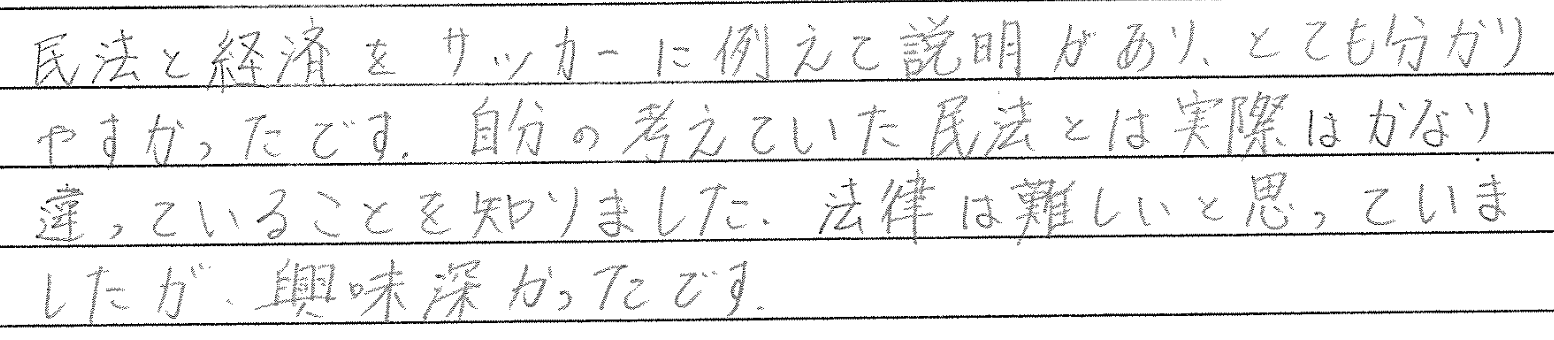 民法と経済をサッカーに例えて説明があり、とても分かり
やすかったです。自分の考えていた民法とは実際はかなり
違っていることを知りました。法律は難しいと思っていま
したが、興味深かったです。